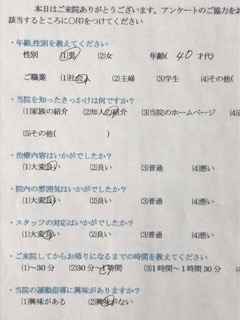 本日はご来院ありがとうございます。アンケートのご協力をお
該当するところに〇印をつけてください
・年齢,性別を教えてください
性別 (1)男 (2)女 年齢( 40 才代)
ご職業 (1)社会人 (2)主婦 (3)学生 (4)その他(
・当院を知ったきっかけは何ですか?
(1)家族の紹介 (2)知人の紹介 (3)当院のホームページ (4)
(5)その他( )
・治療内容はいかがでしたか?
(1)大変良い (2)良い (3)普通 (4)悪い
・院内の雰囲気はいかがですか?
(1)大変良い (2)良い (3)普通 (4)悪い
・スタッフの対応はいかがでしたか?
(1)大変良い (2)良い (3)普通 (4)悪い
・ご来院してからお帰りになるまでの時間を教えてください
(1)~30分 (2)30分~1時間 (3)1時間~1時間30分 (4)
・当院の運動指導に興味がありますか?
(1)興味がある (2)興味がない